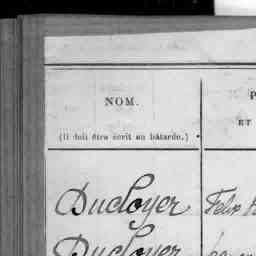 NOM. P
(Il doit être écrit en bâtarde.) ET
Ducloyer Felix
Ducloyer